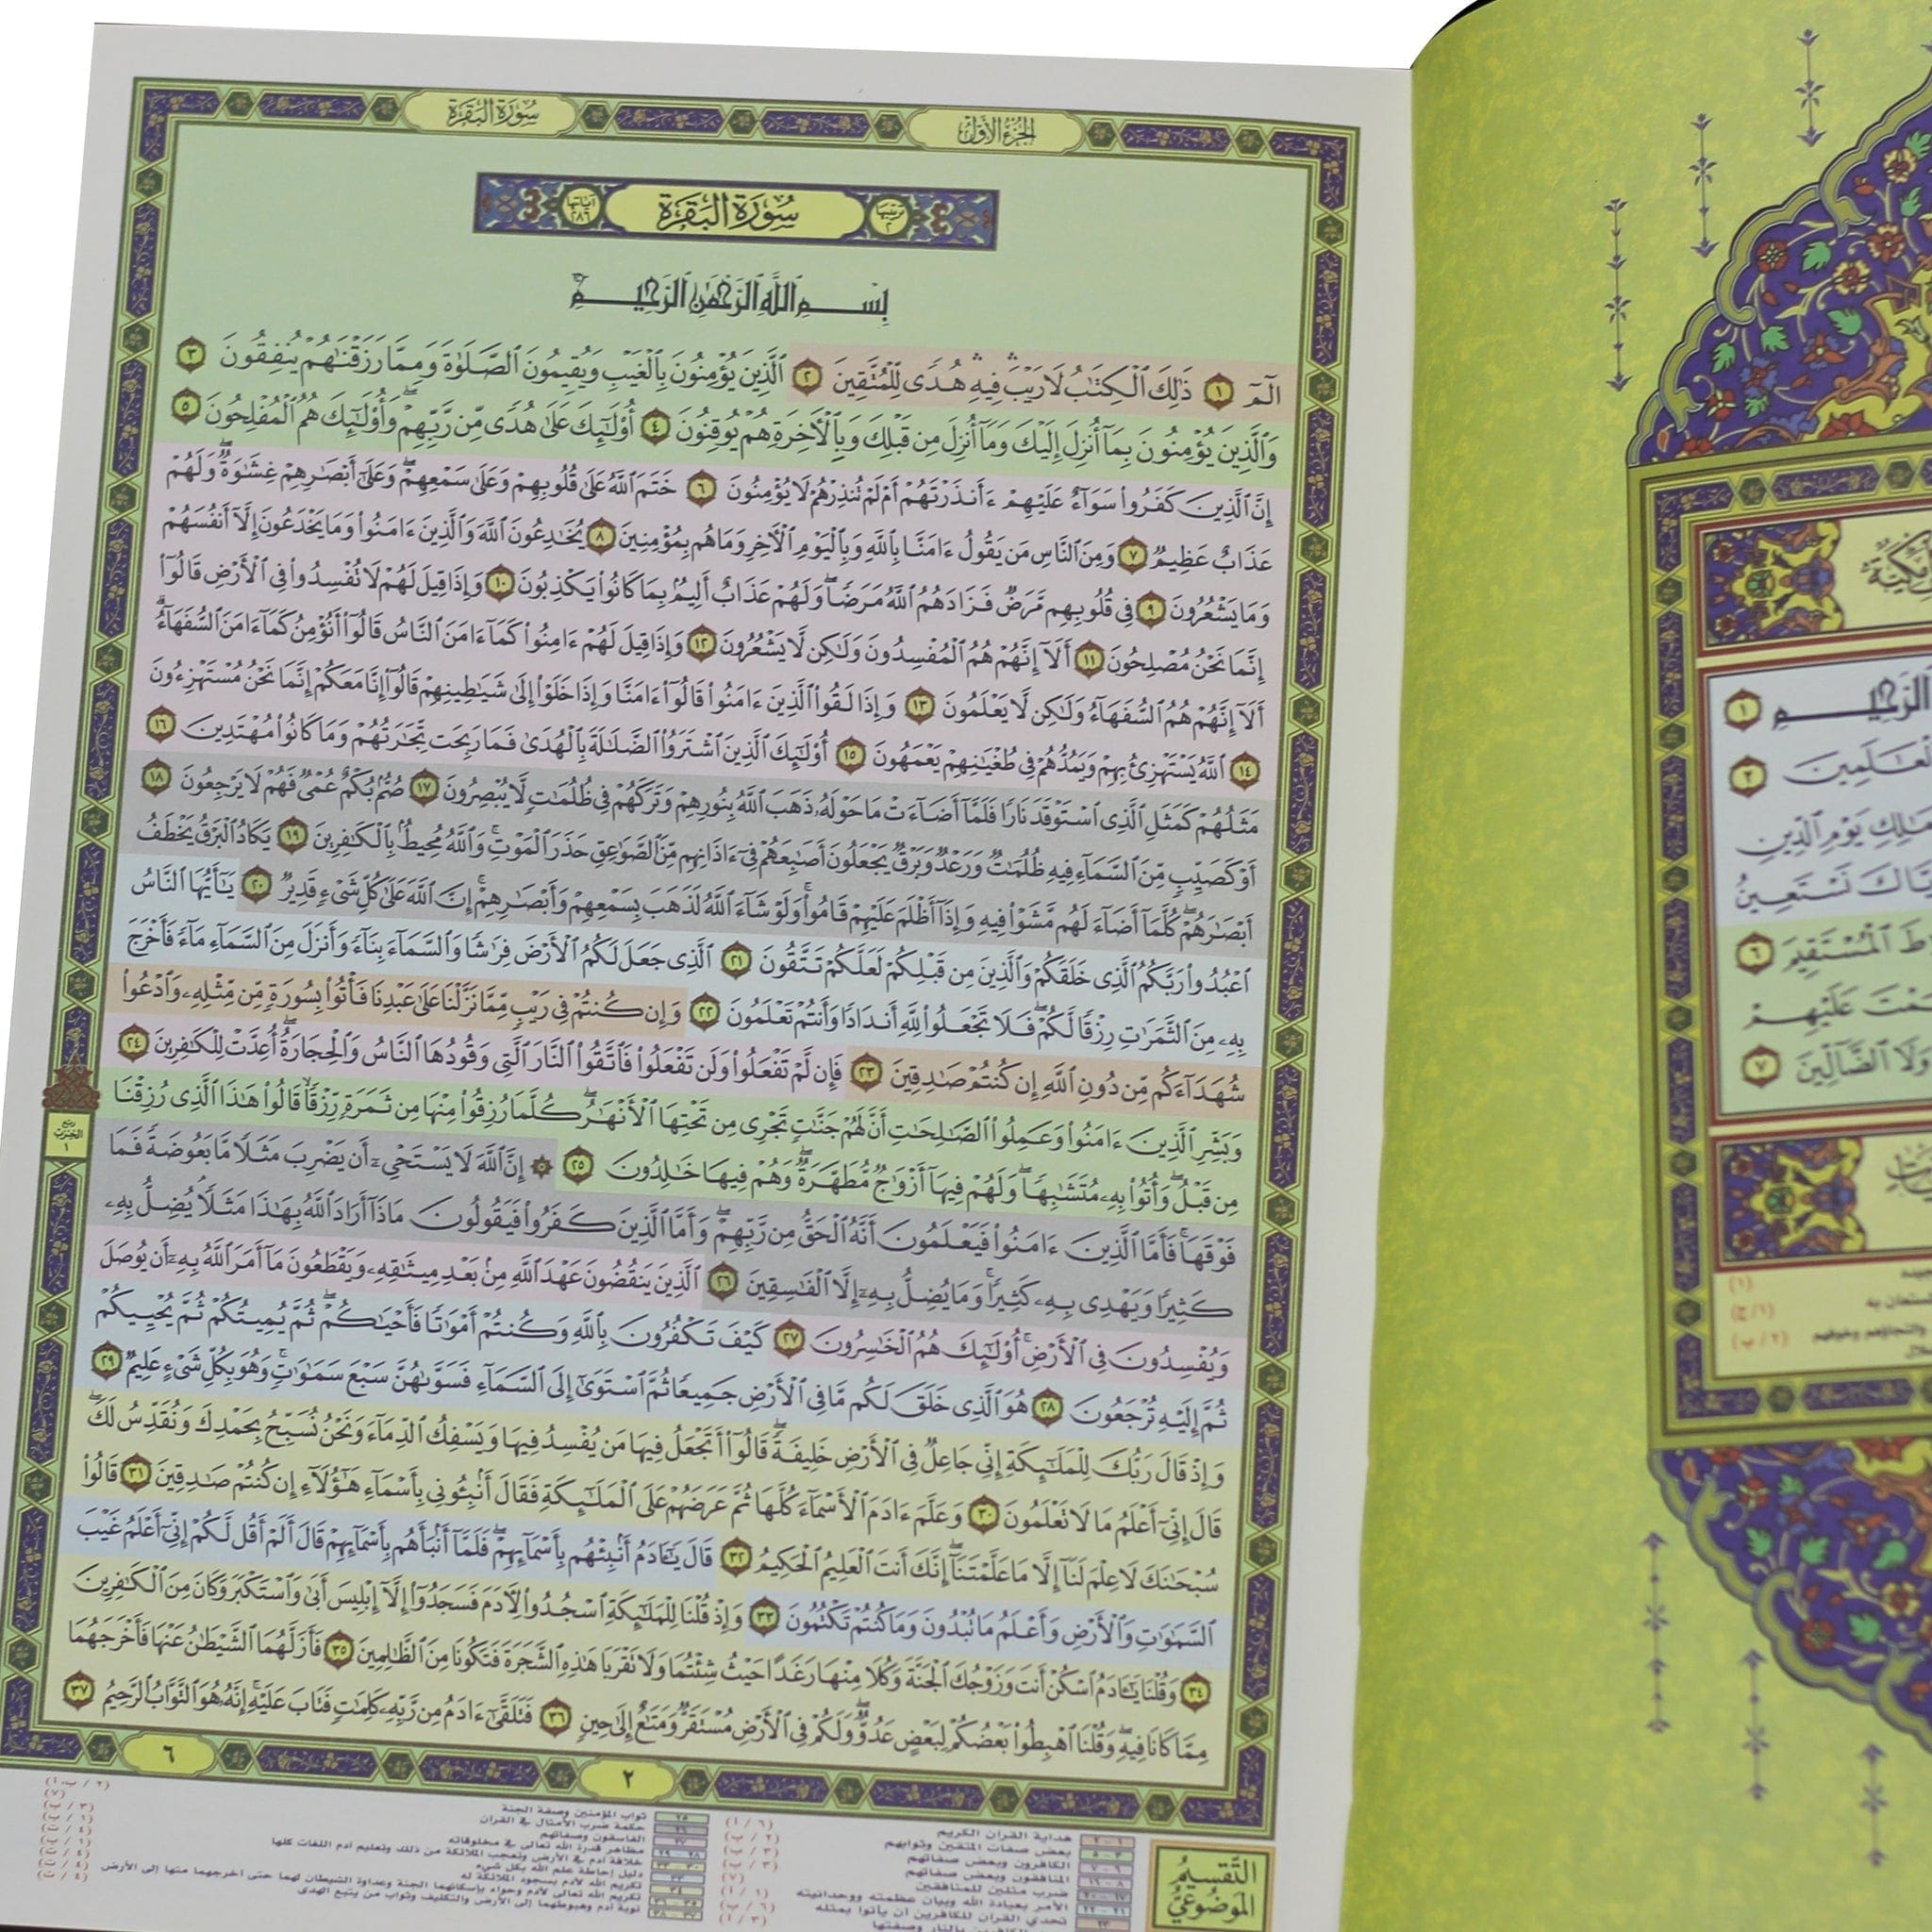 الجزء الأول
سورة البقرة
ترتيبها ٢
سورة البقرة
آياتها ٢٨٦
بِسْمِ ٱللَّهِ ٱلرَّحْمَٰنِ ٱلرَّحِيمِ
الٓمٓ ١ ذَٰلِكَ ٱلْكِتَٰبُ لَا رَيْبَ ۛ فِيهِ ۛ هُدًى لِّلْمُتَّقِينَ ٢ ٱلَّذِينَ يُؤْمِنُونَ بِٱلْغَيْبِ وَيُقِيمُونَ ٱلصَّلَوٰةَ وَمِمَّا رَزَقْنَٰهُمْ يُنفِقُونَ ٣
وَٱلَّذِينَ يُؤْمِنُونَ بِمَآ أُنزِلَ إِلَيْكَ وَمَآ أُنزِلَ مِن قَبْلِكَ وَبِٱلْءَاخِرَةِ هُمْ يُوقِنُونَ ٤ أُو۟لَٰٓئِكَ عَلَىٰ هُدًى مِّن رَّبِّهِمْ ۖ وَأُو۟لَٰٓئِكَ هُمُ ٱلْمُفْلِحُونَ ٥
إِنَّ ٱلَّذِينَ كَفَرُوا۟ سَوَآءٌ عَلَيْهِمْ ءَأَنذَرْتَهُمْ أَمْ لَمْ تُنذِرْهُمْ لَا يُؤْمِنُونَ ٦ خَتَمَ ٱللَّهُ عَلَىٰ قُلُوبِهِمْ وَعَلَىٰ سَمْعِهِمْ ۖ وَعَلَىٰٓ أَبْصَٰرِهِمْ غِشَٰوَةٌ ۖ وَلَهُمْ
عَذَابٌ عَظِيمٌ ٧ وَمِنَ ٱلنَّاسِ مَن يَقُولُ ءَامَنَّا بِٱللَّهِ وَبِٱلْيَوْمِ ٱلْءَاخِرِ وَمَا هُم بِمُؤْمِنِينَ ٨ يُخَٰدِعُونَ ٱللَّهَ وَٱلَّذِينَ ءَامَنُوا۟ وَمَا يَخْدَعُونَ إِلَّآ أَنفُسَهُمْ
وَمَا يَشْعُرُونَ ٩ فِى قُلُوبِهِم مَّرَضٌ فَزَادَهُمُ ٱللَّهُ مَرَضًا ۖ وَلَهُمْ عَذَابٌ أَلِيمٌۢ بِمَا كَانُوا۟ يَكْذِبُونَ ١٠ وَإِذَا قِيلَ لَهُمْ لَا تُفْسِدُوا۟ فِى ٱلْأَرْضِ قَالُوٓا۟
إِنَّمَا نَحْنُ مُصْلِحُونَ ١١ أَلَآ إِنَّهُمْ هُمُ ٱلْمُفْسِدُونَ وَلَٰكِن لَّا يَشْعُرُونَ ١٢ وَإِذَا قِيلَ لَهُمْ ءَامِنُوا۟ كَمَآ ءَامَنَ ٱلنَّاسُ قَالُوٓا۟ أَنُؤْمِنُ كَمَآ ءَامَنَ ٱلسُّفَهَآءُ ۗ
أَلَآ إِنَّهُمْ هُمُ ٱلسُّفَهَآءُ وَلَٰكِن لَّا يَعْلَمُونَ ١٣ وَإِذَا لَقُوا۟ ٱلَّذِينَ ءَامَنُوا۟ قَالُوٓا۟ ءَامَنَّا وَإِذَا خَلَوْا۟ إِلَىٰ شَيَٰطِينِهِمْ قَالُوٓا۟ إِنَّا مَعَكُمْ إِنَّمَا نَحْنُ مُسْتَهْزِءُونَ
١٤ ٱللَّهُ يَسْتَهْزِئُ بِهِمْ وَيَمُدُّهُمْ فِى طُغْيَٰنِهِمْ يَعْمَهُونَ ١٥ أُو۟لَٰٓئِكَ ٱلَّذِينَ ٱشْتَرَوُا۟ ٱلضَّلَٰلَةَ بِٱلْهُدَىٰ فَمَا رَبِحَت تِّجَٰرَتُهُمْ وَمَا كَانُوا۟ مُهْتَدِينَ ١٦
مَثَلُهُمْ كَمَثَلِ ٱلَّذِى ٱسْتَوْقَدَ نَارًا فَلَمَّآ أَضَآءَتْ مَا حَوْلَهُۥ ذَهَبَ ٱللَّهُ بِنُورِهِمْ وَتَرَكَهُمْ فِى ظُلُمَٰتٍ لَّا يُبْصِرُونَ ١٧ صُمٌّۢ بُكْمٌ عُمْىٌ فَهُمْ لَا يَرْجِعُونَ ١٨
أَوْ كَصَيِّبٍ مِّنَ ٱلسَّمَآءِ فِيهِ ظُلُمَٰتٌ وَرَعْدٌ وَبَرْقٌ يَجْعَلُونَ أَصَٰبِعَهُمْ فِىٓ ءَاذَانِهِم مِّنَ ٱلصَّوَٰعِقِ حَذَرَ ٱلْمَوْتِ ۚ وَٱللَّهُ مُحِيطٌۢ بِٱلْكَٰفِرِينَ ١٩ يَكَادُ ٱلْبَرْقُ يَخْطَفُ
أَبْصَٰرَهُمْ ۖ كُلَّمَآ أَضَآءَ لَهُم مَّشَوْا۟ فِيهِ وَإِذَآ أَظْلَمَ عَلَيْهِمْ قَامُوا۟ ۚ وَلَوْ شَآءَ ٱللَّهُ لَذَهَبَ بِسَمْعِهِمْ وَأَبْصَٰرِهِمْ ۚ إِنَّ ٱللَّهَ عَلَىٰ كُلِّ شَىْءٍ قَدِيرٌ ٢٠ يَٰٓأَيُّهَا ٱلنَّاسُ
ٱعْبُدُوا۟ رَبَّكُمُ ٱلَّذِى خَلَقَكُمْ وَٱلَّذِينَ مِن قَبْلِكُمْ لَعَلَّكُمْ تَتَّقُونَ ٢١ ٱلَّذِى جَعَلَ لَكُمُ ٱلْأَرْضَ فِرَٰشًا وَٱلسَّمَآءَ بِنَآءً وَأَنزَلَ مِنَ ٱلسَّمَآءِ مَآءً فَأَخْرَجَ
بِهِۦ مِنَ ٱلثَّمَرَٰتِ رِزْقًا لَّكُمْ ۖ فَلَا تَجْعَلُوا۟ لِلَّهِ أَندَادًا وَأَنتُمْ تَعْلَمُونَ ٢٢ وَإِن كُنتُمْ فِى رَيْبٍ مِّمَّا نَزَّلْنَا عَلَىٰ عَبْدِنَا فَأْتُوا۟ بِسُورَةٍ مِّن مِّثْلِهِۦ وَٱدْعُوا۟
شُهَدَآءَكُم مِّن دُونِ ٱللَّهِ إِن كُنتُمْ صَٰدِقِينَ ٢٣ فَإِن لَّمْ تَفْعَلُوا۟ وَلَن تَفْعَلُوا۟ فَٱتَّقُوا۟ ٱلنَّارَ ٱلَّتِى وَقُودُهَا ٱلنَّاسُ وَٱلْحِجَارَةُ ۖ أُعِدَّتْ لِلْكَٰفِرِينَ ٢٤
وَبَشِّرِ ٱلَّذِينَ ءَامَنُوا۟ وَعَمِلُوا۟ ٱلصَّٰلِحَٰتِ أَنَّ لَهُمْ جَنَّٰتٍ تَجْرِى مِن تَحْتِهَا ٱلْأَنْهَٰرُ ۖ كُلَّمَا رُزِقُوا۟ مِنْهَا مِن ثَمَرَةٍ رِّزْقًا ۙ قَالُوا۟ هَٰذَا ٱلَّذِى رُزِقْنَا
مِن قَبْلُ ۖ وَأُتُوا۟ بِهِۦ مُتَشَٰبِهًا ۖ وَلَهُمْ فِيهَآ أَزْوَٰجٌ مُّطَهَّرَةٌ ۖ وَهُمْ فِيهَا خَٰلِدُونَ ٢٥ ۞ إِنَّ ٱللَّهَ لَا يَسْتَحْىِۦٓ أَن يَضْرِبَ مَثَلًا مَّا بَعُوضَةً فَمَا
فَوْقَهَا ۚ فَأَمَّا ٱلَّذِينَ ءَامَنُوا۟ فَيَعْلَمُونَ أَنَّهُ ٱلْحَقُّ مِن رَّبِّهِمْ ۖ وَأَمَّا ٱلَّذِينَ كَفَرُوا۟ فَيَقُولُونَ مَاذَآ أَرَادَ ٱللَّهُ بِهَٰذَا مَثَلًا ۘ يُضِلُّ بِهِۦ
كَثِيرًا وَيَهْدِى بِهِۦ كَثِيرًا ۚ وَمَا يُضِلُّ بِهِۦٓ إِلَّا ٱلْفَٰسِقِينَ ٢٦ ٱلَّذِينَ يَنقُضُونَ عَهْدَ ٱللَّهِ مِنۢ بَعْدِ مِيثَٰقِهِۦ وَيَقْطَعُونَ مَآ أَمَرَ ٱللَّهُ بِهِۦٓ أَن يُوصَلَ
وَيُفْسِدُونَ فِى ٱلْأَرْضِ ۚ أُو۟لَٰٓئِكَ هُمُ ٱلْخَٰسِرُونَ ٢٧ كَيْفَ تَكْفُرُونَ بِٱللَّهِ وَكُنتُمْ أَمْوَٰتًا فَأَحْيَٰكُمْ ۖ ثُمَّ يُمِيتُكُمْ ثُمَّ يُحْيِيكُمْ
ثُمَّ إِلَيْهِ تُرْجَعُونَ ٢٨ هُوَ ٱلَّذِى خَلَقَ لَكُم مَّا فِى ٱلْأَرْضِ جَمِيعًا ثُمَّ ٱسْتَوَىٰٓ إِلَى ٱلسَّمَآءِ فَسَوَّىٰهُنَّ سَبْعَ سَمَٰوَٰتٍ ۚ وَهُوَ بِكُلِّ شَىْءٍ عَلِيمٌ ٢٩
وَإِذْ قَالَ رَبُّكَ لِلْمَلَٰٓئِكَةِ إِنِّى جَاعِلٌ فِى ٱلْأَرْضِ خَلِيفَةً ۖ قَالُوٓا۟ أَتَجْعَلُ فِيهَا مَن يُفْسِدُ فِيهَا وَيَسْفِكُ ٱلدِّمَآءَ وَنَحْنُ نُسَبِّحُ بِحَمْدِكَ وَنُقَدِّسُ لَكَ ۖ
قَالَ إِنِّىٓ أَعْلَمُ مَا لَا تَعْلَمُونَ ٣٠ وَعَلَّمَ ءَادَمَ ٱلْأَسْمَآءَ كُلَّهَا ثُمَّ عَرَضَهُمْ عَلَى ٱلْمَلَٰٓئِكَةِ فَقَالَ أَنۢبِـُٔونِى بِأَسْمَآءِ هَٰٓؤُلَآءِ إِن كُنتُمْ صَٰدِقِينَ ٣١ قَالُوا۟
سُبْحَٰنَكَ لَا عِلْمَ لَنَآ إِلَّا مَا عَلَّمْتَنَآ ۖ إِنَّكَ أَنتَ ٱلْعَلِيمُ ٱلْحَكِيمُ ٣٢ قَالَ يَٰٓـَٔادَمُ أَنۢبِئْهُم بِأَسْمَآئِهِمْ ۖ فَلَمَّآ أَنۢبَأَهُم بِأَسْمَآئِهِمْ قَالَ أَلَمْ أَقُل لَّكُمْ إِنِّىٓ أَعْلَمُ غَيْبَ
ٱلسَّمَٰوَٰتِ وَٱلْأَرْضِ وَأَعْلَمُ مَا تُبْدُونَ وَمَا كُنتُمْ تَكْتُمُونَ ٣٣ وَإِذْ قُلْنَا لِلْمَلَٰٓئِكَةِ ٱسْجُدُوا۟ لِءَادَمَ فَسَجَدُوٓا۟ إِلَّآ إِبْلِيسَ أَبَىٰ وَٱسْتَكْبَرَ وَكَانَ مِنَ ٱلْكَٰفِرِينَ
٣٤ وَقُلْنَا يَٰٓـَٔادَمُ ٱسْكُنْ أَنتَ وَزَوْجُكَ ٱلْجَنَّةَ وَكُلَا مِنْهَا رَغَدًا حَيْثُ شِئْتُمَا وَلَا تَقْرَبَا هَٰذِهِ ٱلشَّجَرَةَ فَتَكُونَا مِنَ ٱلظَّٰلِمِينَ ٣٥ فَأَزَلَّهُمَا ٱلشَّيْطَٰنُ عَنْهَا فَأَخْرَجَهُمَا
مِمَّا كَانَا فِيهِ ۖ وَقُلْنَا ٱهْبِطُوا۟ بَعْضُكُمْ لِبَعْضٍ عَدُوٌّ ۖ وَلَكُمْ فِى ٱلْأَرْضِ مُسْتَقَرٌّ وَمَتَٰعٌ إِلَىٰ حِينٍ ٣٦ فَتَلَقَّىٰٓ ءَادَمُ مِن رَّبِّهِۦ كَلِمَٰتٍ فَتَابَ عَلَيْهِ ۚ إِنَّهُۥ هُوَ ٱلتَّوَّابُ ٱلرَّحِيمُ ٣٧
ربع الحزب ١
٢
٦
التقسيم الموضوعي
١ - ٢ هداية القرآن الكريم
٣ - ٥ بعض صفات المتقين وثوابهم
٦ - ٧ الكافرون وبعض صفاتهم
٨ - ١٦ المنافقون وبعض صفاتهم
١٧ - ٢٠ ضرب مثلين للمنافقين
٢١ - ٢٢ الأمر بعبادة الله وبيان عظمته ووحدانيته
٢٣ تحدي القرآن للكافرين أن يأتوا بمثله
٢٥ ثواب المؤمنين وصفة الجنة
٢٦ حكمة ضرب الأمثال في القرآن
٢٧ الفاسقون وصفاتهم
٢٨ - ٢٩ مظاهر قدرة الله تعالى في مخلوقاته
خلافة آدم في الأرض وتعجب الملائكة من ذلك وتعليم آدم اللغات كلها
٣٣ دليل إحاطة علم الله بكل شيء
٣٤ تكريم الله لآدم بسجود الملائكة له
٣٥ - ٣٦ تكريم الله تعالى لآدم وحواء بإسكانهما الجنة وعداوة الشيطان لهما حتى أخرجهما منها إلى الأرض
توبة آدم وهبوطهما إلى الأرض والتكليف وثواب من يتبع الهدى
مكية
ٱلرَّحِيمِ ١
ٱلْعَٰلَمِينَ ٢
مَٰلِكِ يَوْمِ ٱلدِّينِ
نَسْتَعِينُ
ٱلْمُسْتَقِيمَ ٦
عَلَيْهِمْ
وَلَا ٱلضَّآلِّينَ ٧